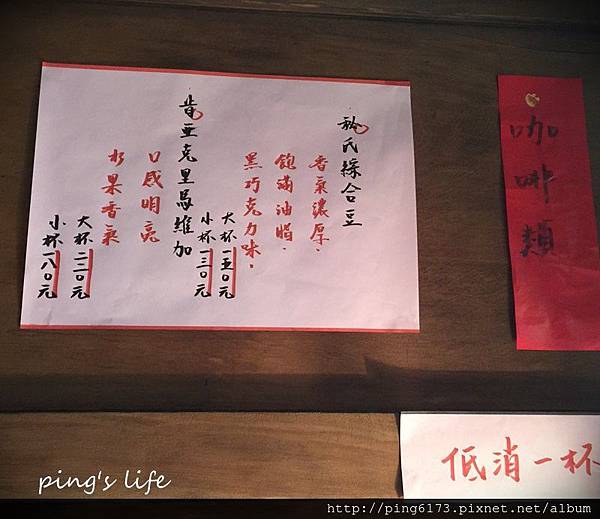 咖啡類
秘氏綜合豆
香氣濃厚、
飽滿油脂、
黑巧克力味。
大杯一五〇元
小杯一三〇元
肯亞克里馬維加
口感明亮
水果香氣
大杯二二〇元
小杯一八〇元
低消一杯
ping's life
http://ping6173.pixnet.net/album